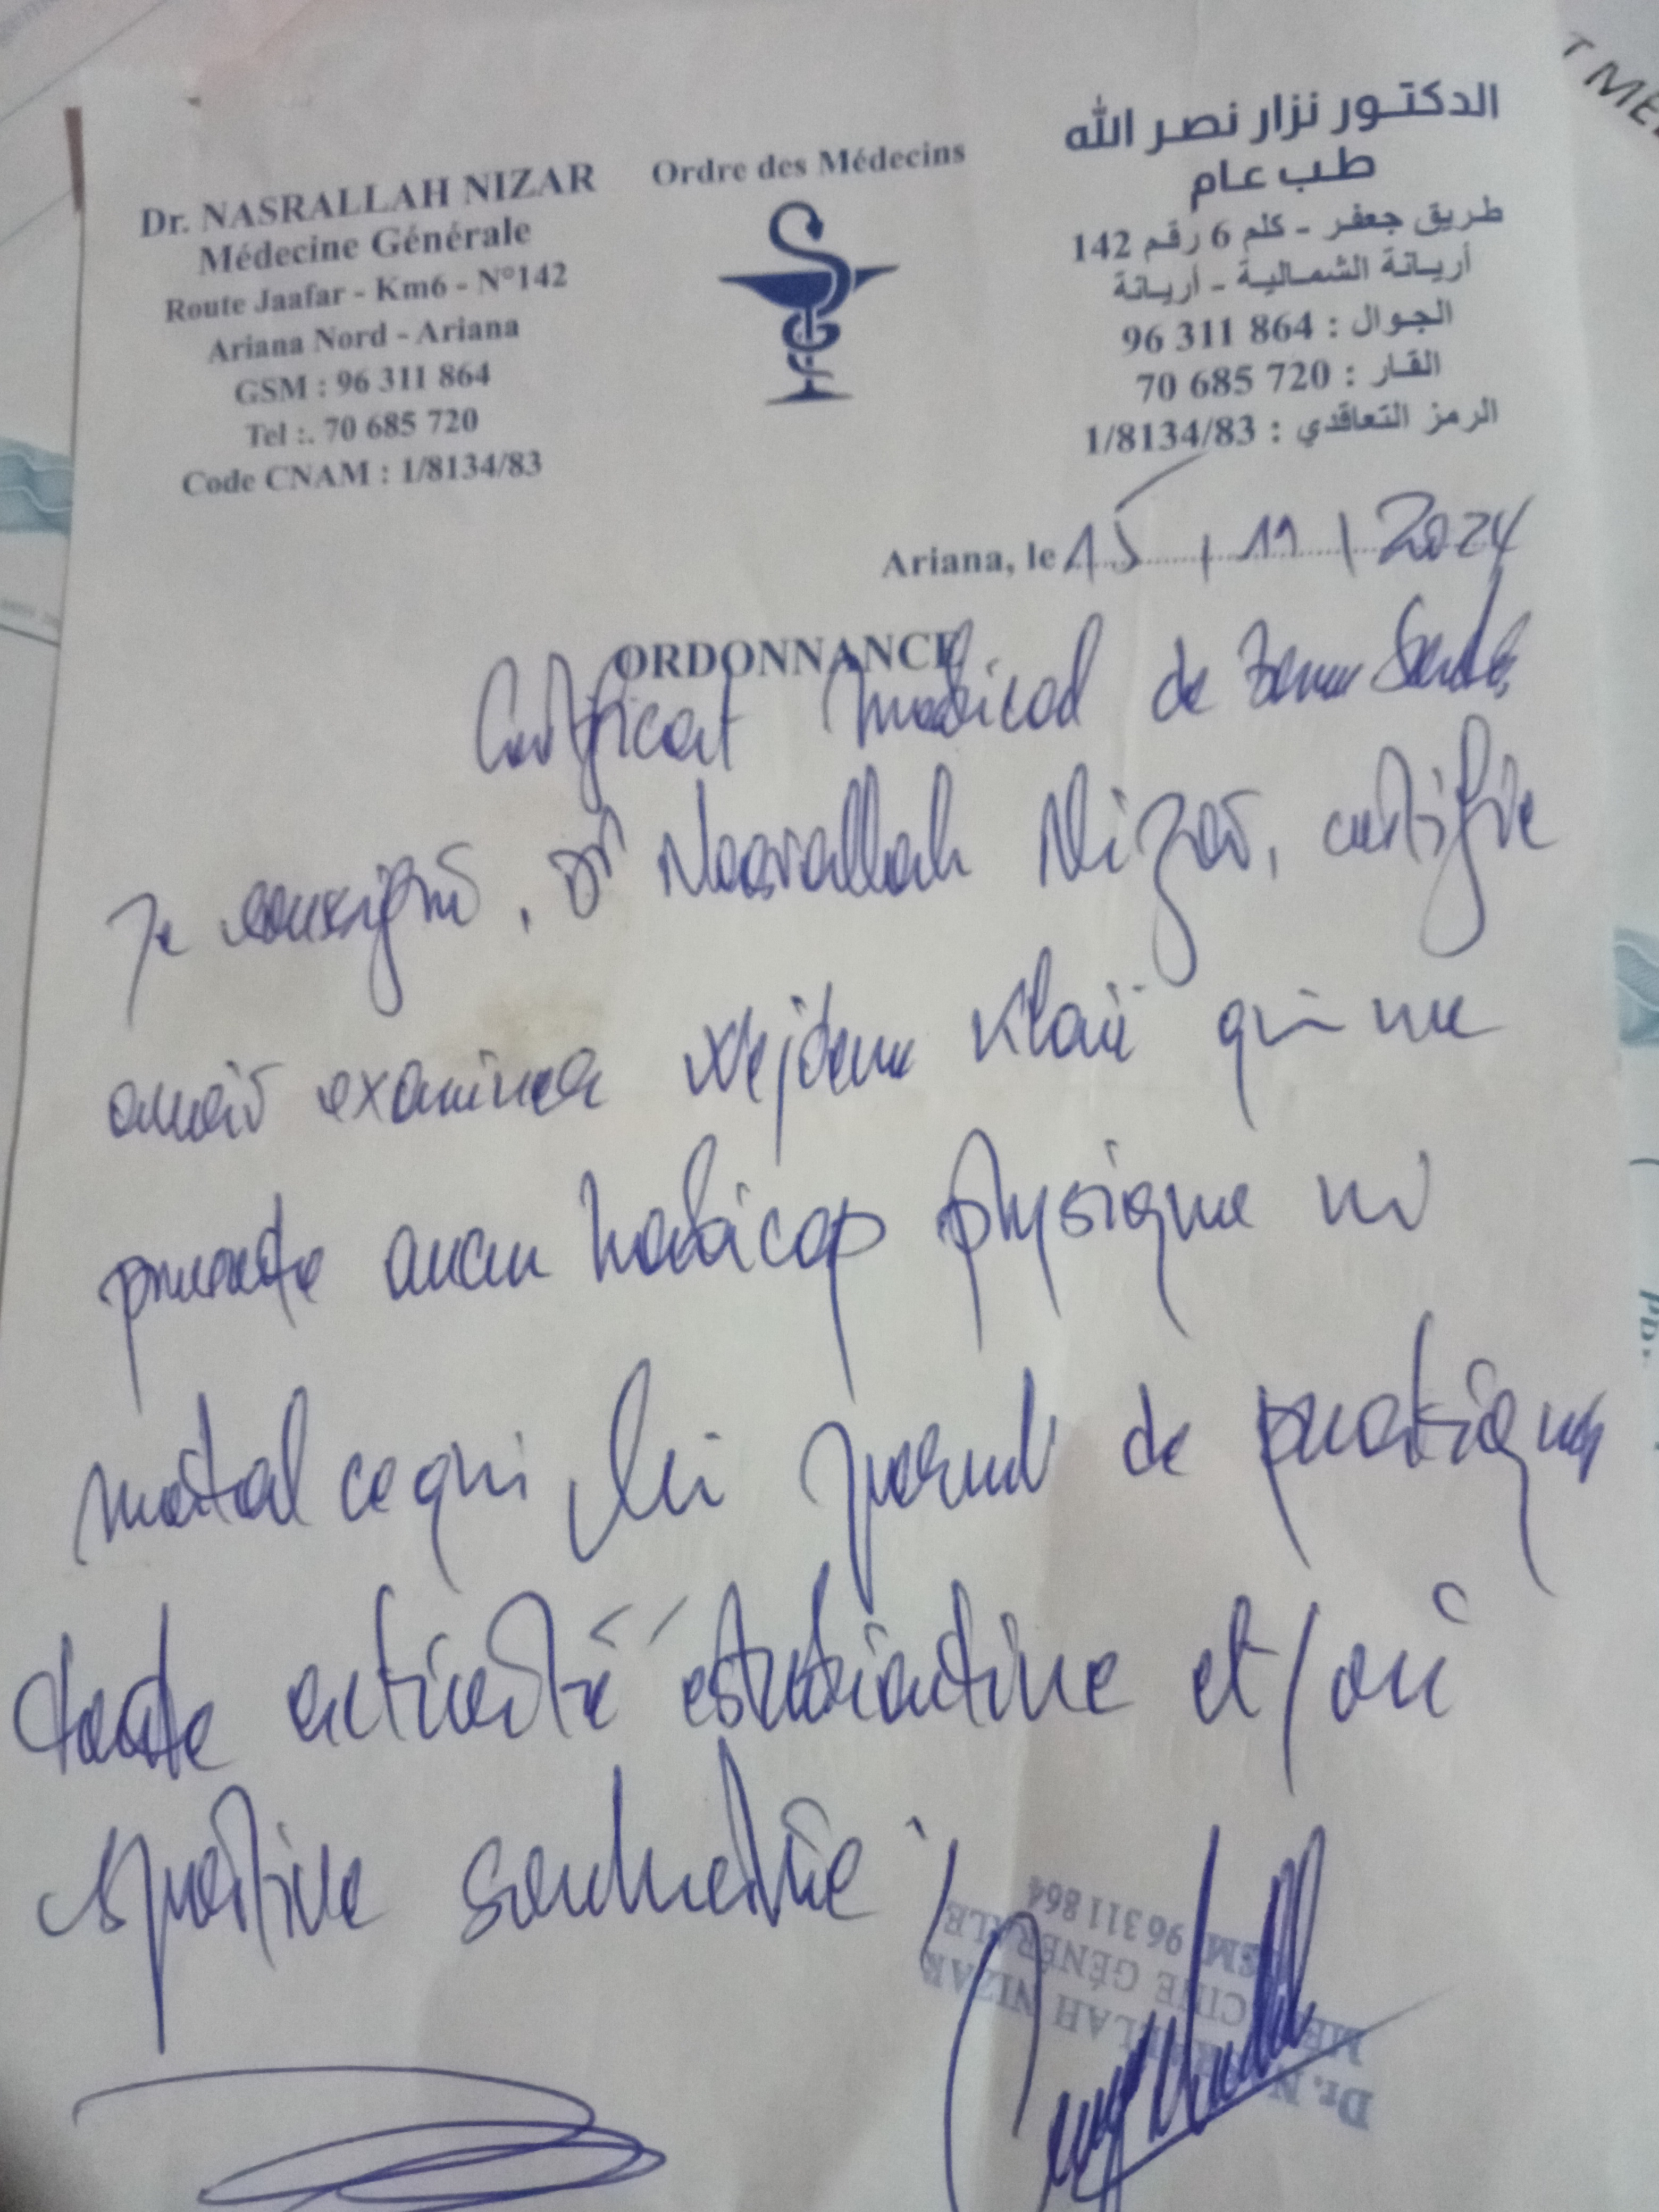 Dr. NASRALLAH NIZAR
Médecine Générale
Route Jaafar - Km6 - N°142
Ariana Nord - Ariana
GSM : 96 311 864
Tel :. 70 685 720
Code CNAM : 1/8134/83
Ordre des Médecins
الدكتور نزار نصر الله
طب عام
طريق جعفر - كلم 6 رقم 142
أريانة الشمالية - أريانة
الجوال : 96 311 864
القار : 70 685 720
الرمز التعاقدي : 1/8134/83
T MÉ
Ariana, le 15 / 11 / 2024
ORDONNANCE
Certificat médical de bonne Santé
Je soussigné, Dr Nasrallah Nizar, certifie
avoir examiner Wejdene Klaii qui ne
presente aucun handicap physique ni
mental ce qui lui permet de pratiquer
toute activité estudiantine et/ou
sportive souhaitée
Dr. NASRALLAH NIZAR
MEDECINE GÉNÉRALE
GSM 96 311 864